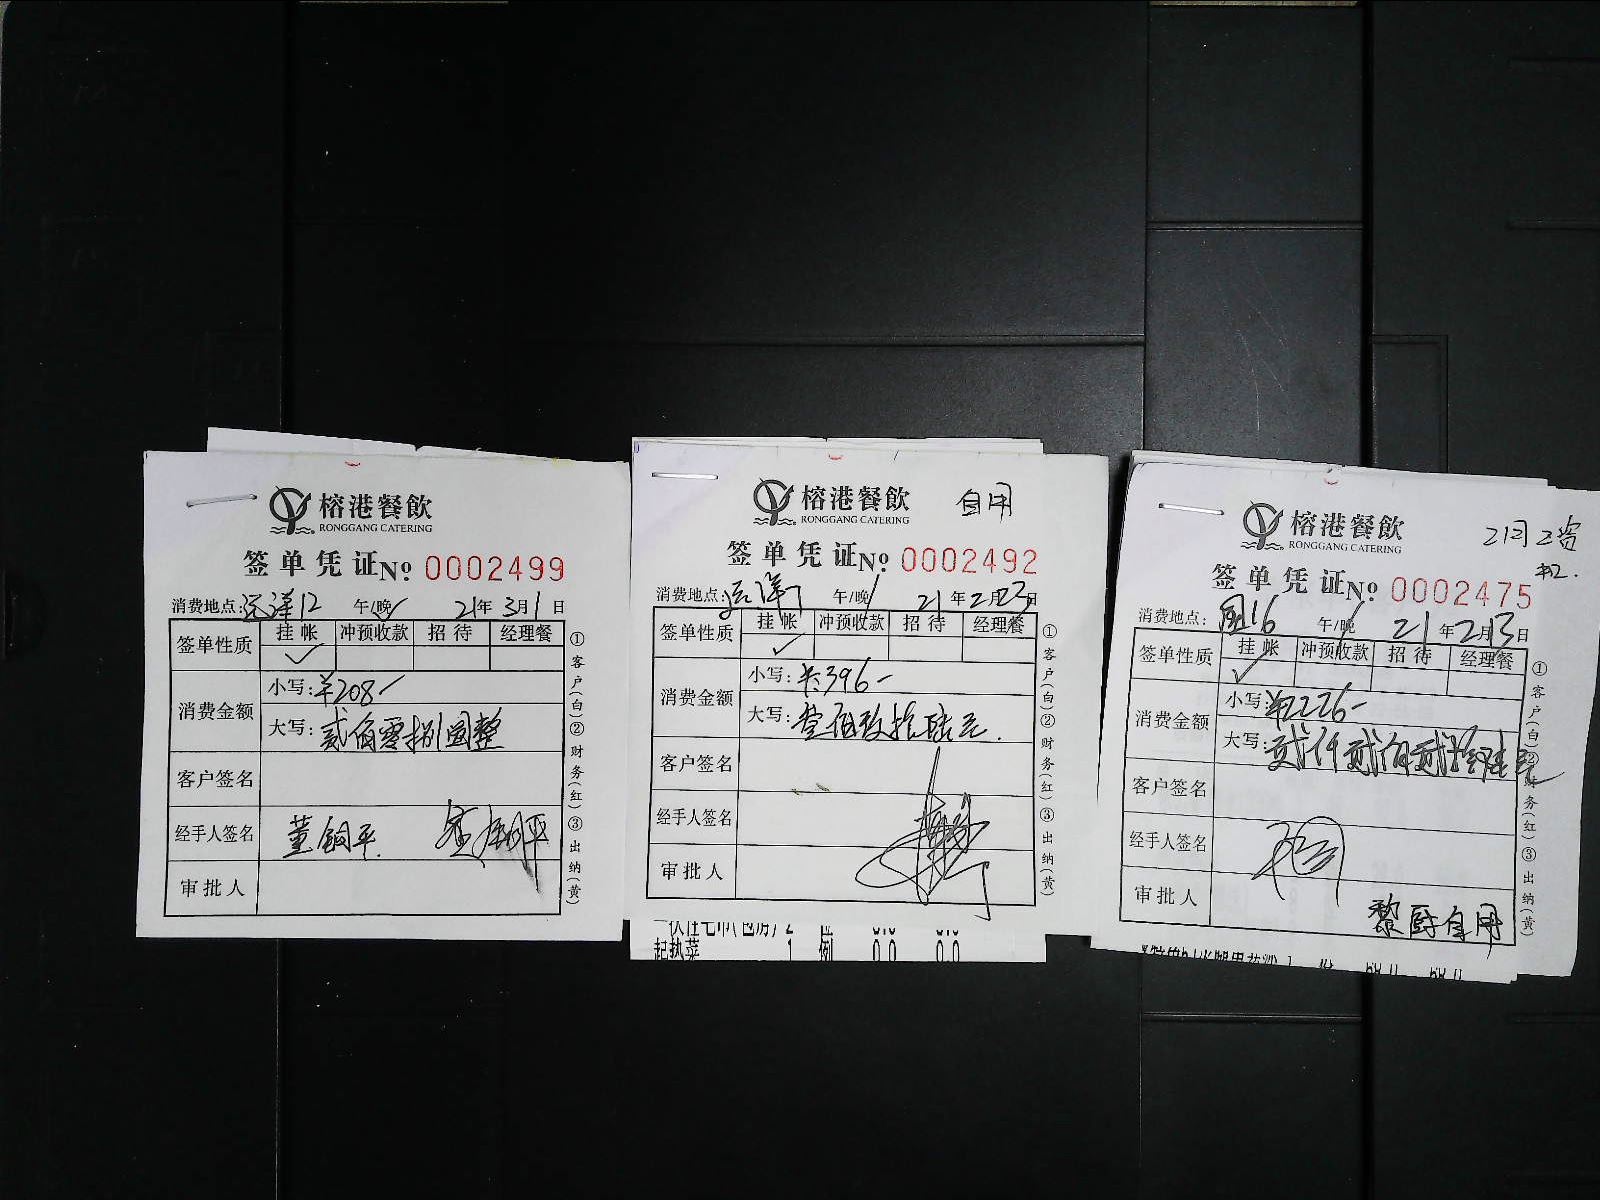 榕港餐飲
RONGGANG CATERING
签单凭证№ 0002499
消费地点:远洋12 午/晚 21年3月1日
签单性质 挂帐 冲预收款 招待 经理餐
✓
消费金额
小写:¥208-
大写:贰佰零捌圆整
客户签名
经手人签名 董钢平
审批人
①客户(白)②财务(红)③出纳(黄)
榕港餐飲 自用
RONGGANG CATERING
签单凭证№ 0002492
消费地点:远洋 午/晚 21年2月23日
签单性质 挂帐 冲预收款 招待 经理餐
✓
消费金额
小写:¥396-
大写:叁佰玖拾陆元
客户签名
经手人签名
审批人
①客户(白)②财务(红)③出纳(黄)
起热菜 1 例 0.0 0.0
榕港餐飲
RONGGANG CATERING
签单凭证№ 0002475
消费地点: 16 午/晚 21年2月13日
签单性质 挂帐 冲预收款 招待 经理餐
✓
消费金额
小写:¥2226-
大写:贰仟贰佰贰拾陆元
客户签名
经手人签名
审批人
黎厨自用
①客户(白)②财务(红)③出纳(黄)